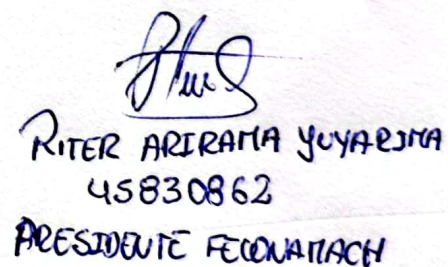 RITER ARIRAMA YUYARIMA
45830862
PRESIDENTE FECONAMACH